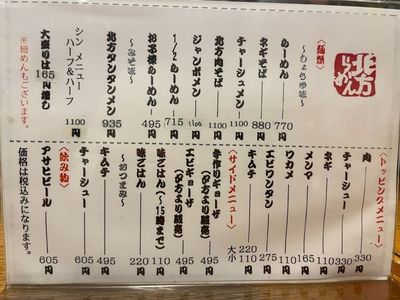 北方
らーめん
〈麺類〉
〜しょうゆ味〜
らーめん 770円
ネギそば 880円
チャーシューメン 1100円
北方肉そば 1100円
ジャンボメン 1100円
1/2らーめん 715円
お子様らーめん 495円
〜みそ味〜
北方タンタンメン 935円
シン メニュー
ハーフ&ハーフ 1100円
大盛りは165円増し
※細めんもございます。
〈トッピングメニュー〉
肉 330円
チャーシュー 330円
ネギ 110円
メンマ 165円
ワカメ 110円
エビワンタン 275円
キムチ 大220円 小110円
〈サイドメニュー〉
手作りギョーザ (夕方より販売) 495円
エビギョーザ (夕方より販売) 495円
味ごはん (〜15時まで) 110円
味ごはん 220円
〜おつまみ〜
キムチ 495円
チャーシュー 605円
〈飲み物〉
アサヒビール 605円
価格は税込みになります。